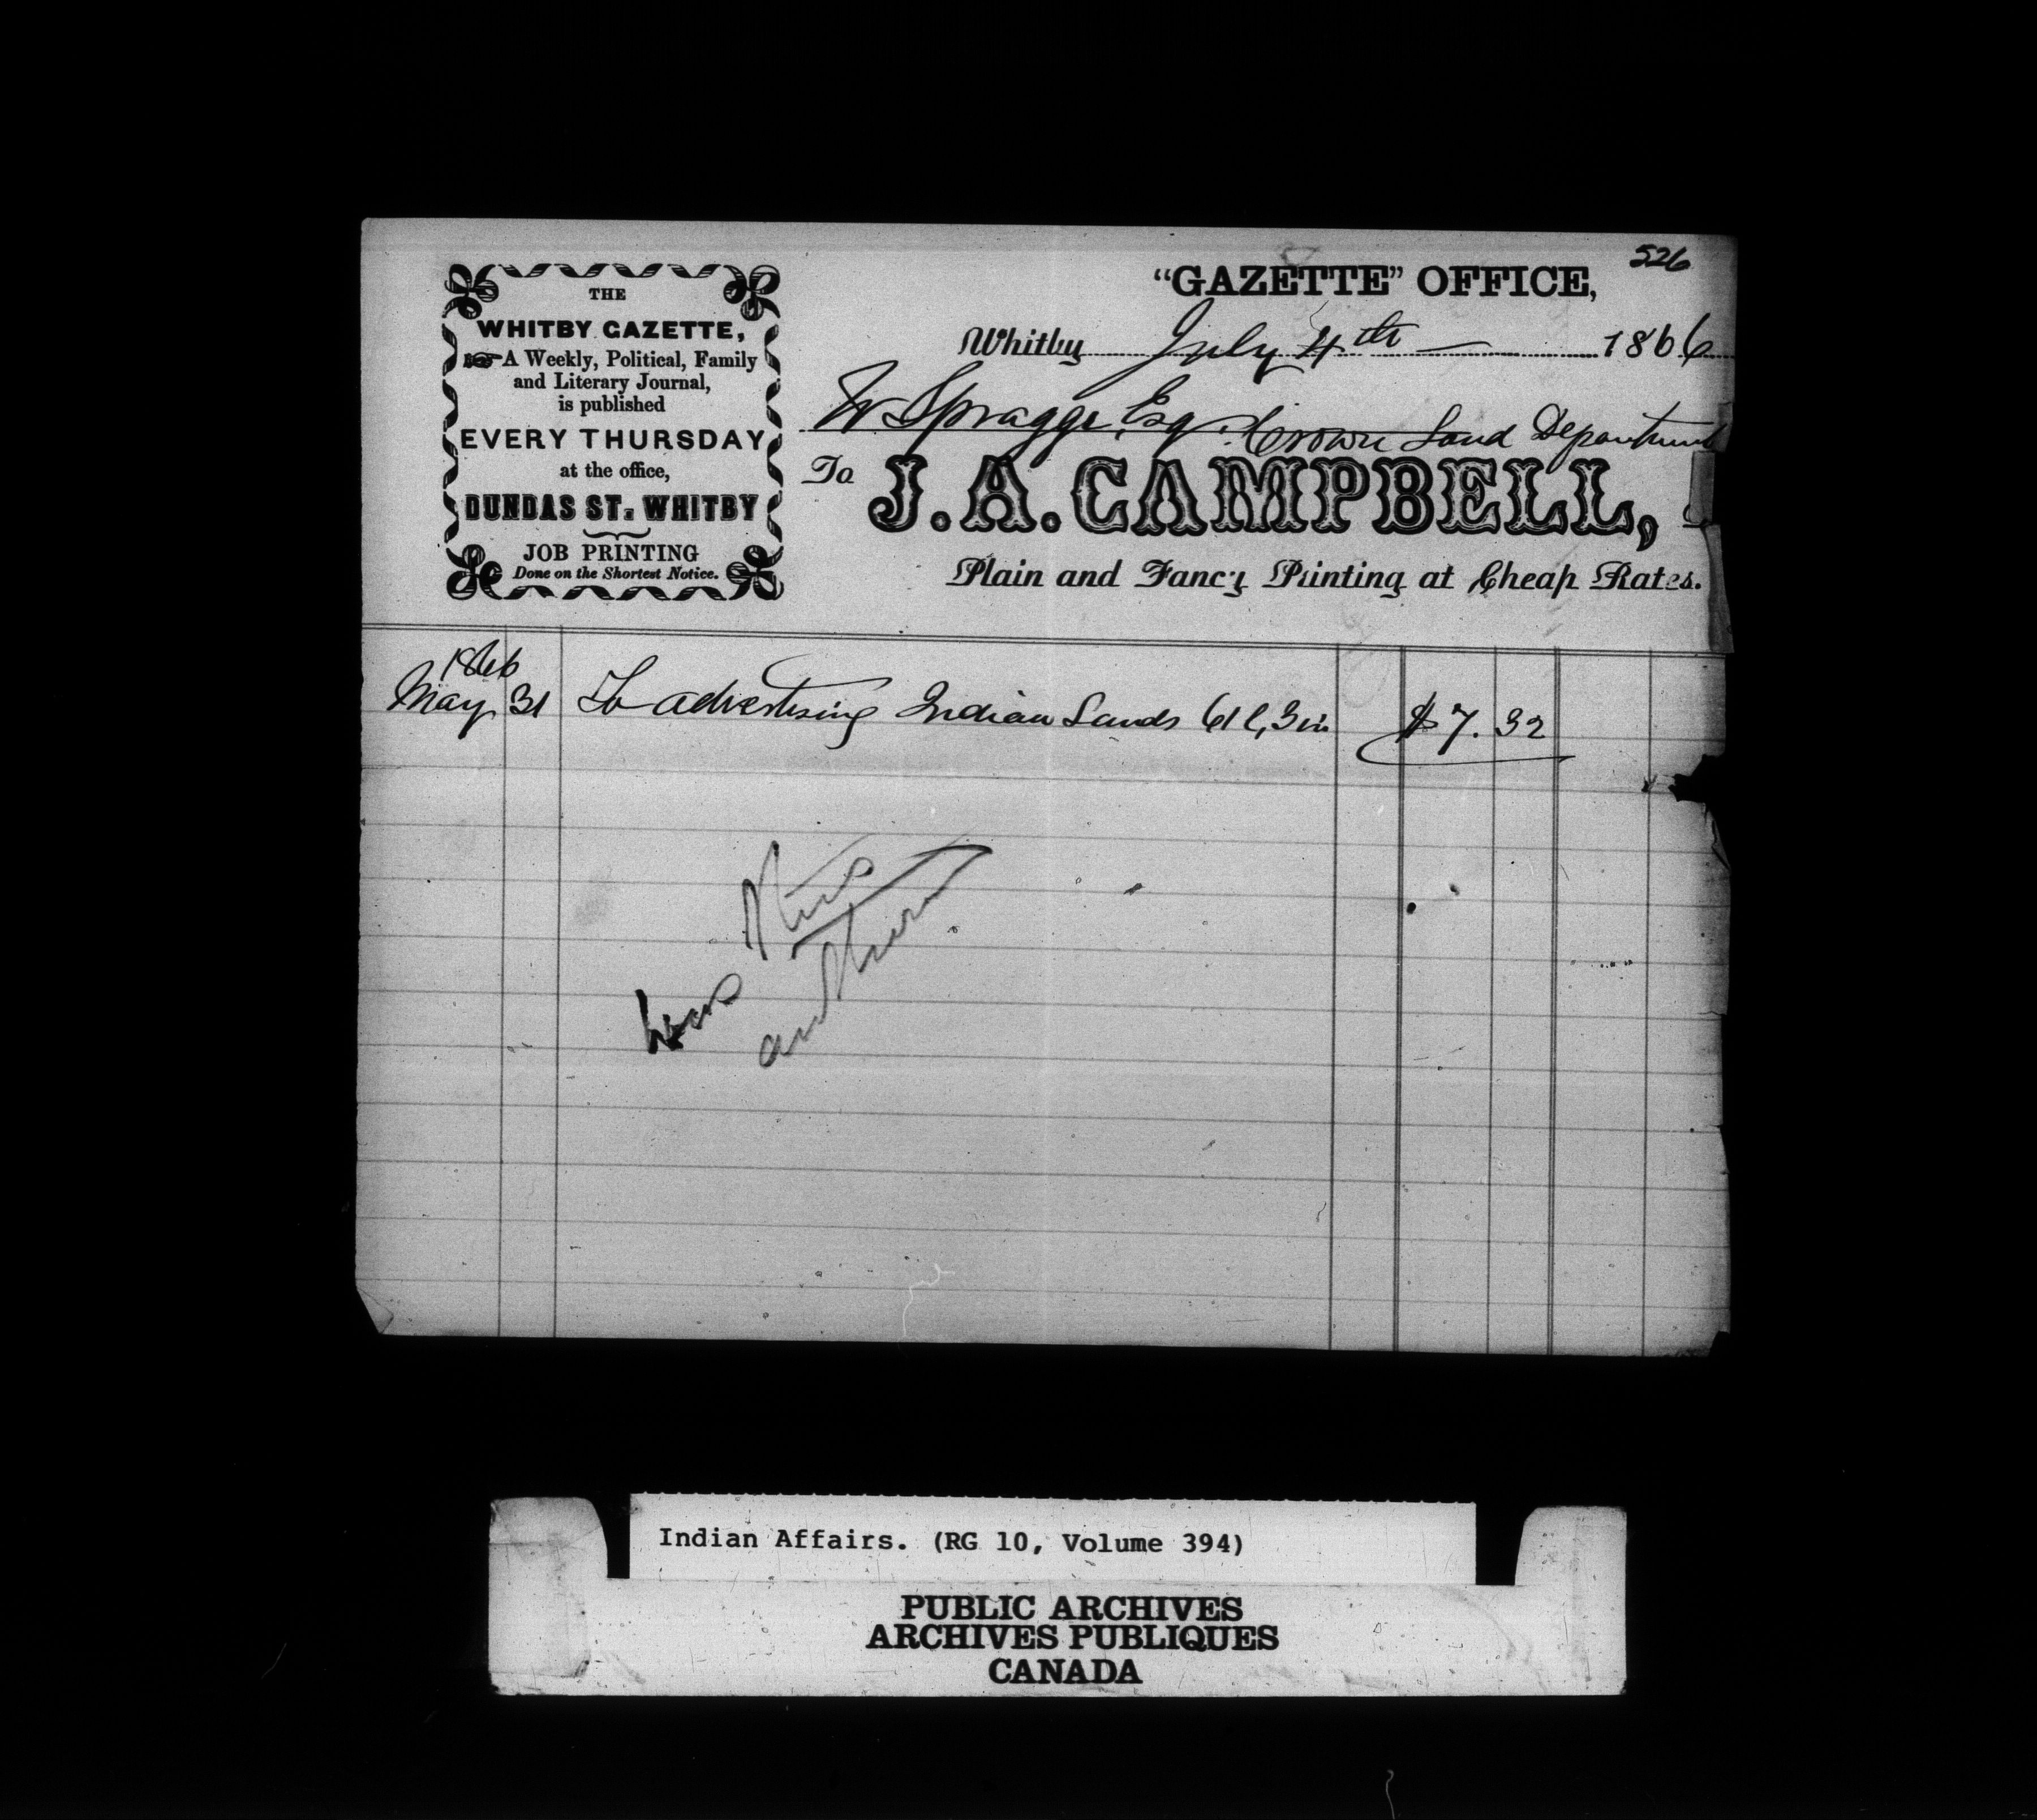 526
THE
WHITBY GAZETTE,
A Weekly, Political, Family
and Literary Journal,
is published
EVERY THURSDAY
at the office,
DUNDAS ST. WHITBY
JOB PRINTING
Done on the Shortest Notice.
"GAZETTE" OFFICE,
Whitby July 4th 1866
W Spragge, Esq. Crown Land Department
To J. A. CAMPBELL,
Plain and Fancy Printing at Cheap Rates.
1866
May 31 To advertising Indian Lands 61 l, 3 in $7.32
Indian Affairs. (RG 10, Volume 394)
PUBLIC ARCHIVES
ARCHIVES PUBLIQUES
CANADA